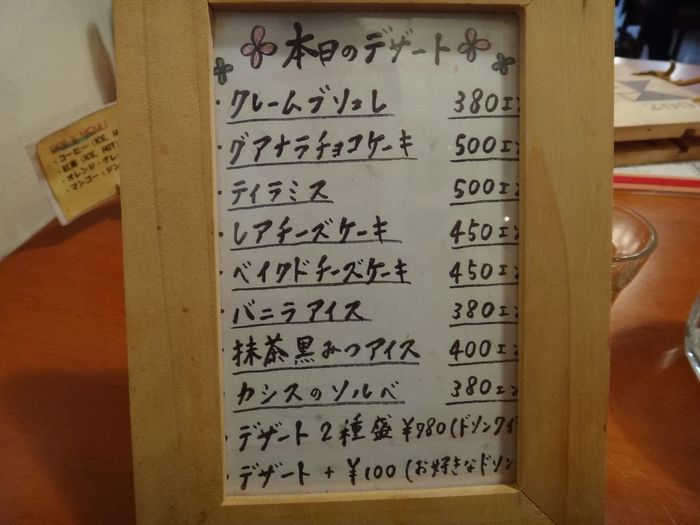 本日のデザート
・クレームブリュレ 380エン
・グアナラチョコケーキ 500エン
・ティラミス 500エン
・レアチーズケーキ 450エン
・ベイクドチーズケーキ 450エン
・バニラアイス 380エン
・抹茶黒みつアイス 400エン
・カシスのソルベ 380エン
・デザート2種盛 ¥780(ドリンクイ
・デザート + ¥100 (お好きなドリン
・コーヒー(ICE, H
・紅茶(ICE, HOT)
・オレンジ・グレ
・マンゴー・ジン